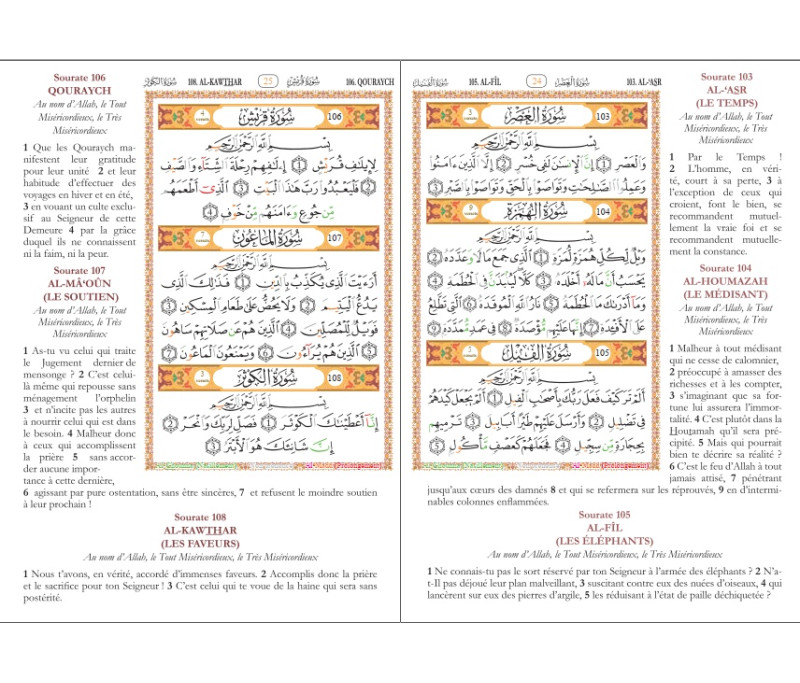 سُورَةُ الفِيلِ 105. AL-FÎL 24 سُورَةُ العَصْرِ 103. AL-‘ASR
103 سُورَةُ العَصْرِ 3
بِسْمِ اللَّهِ الرَّحْمَٰنِ الرَّحِيمِ
وَالْعَصْرِ ١ إِنَّ الْإِنسَانَ لَفِي خُسْرٍ ٢ إِلَّا الَّذِينَ ءَامَنُوا
وَعَمِلُوا الصَّالِحَاتِ وَتَوَاصَوْا بِالْحَقِّ وَتَوَاصَوْا بِالصَّبْرِ ٣
104 سُورَةُ الهُمَزَةِ 9
بِسْمِ اللَّهِ الرَّحْمَٰنِ الرَّحِيمِ
وَيْلٌ لِّكُلِّ هُمَزَةٍ لُّمَزَةٍ ١ الَّذِي جَمَعَ مَالًا وَعَدَّدَهُ ٢
يَحْسَبُ أَنَّ مَالَهُ أَخْلَدَهُ ٣ كَلَّا لَيُنبَذَنَّ فِي الْحُطَمَةِ ٤
وَمَا أَدْرَاكَ مَا الْحُطَمَةُ ٥ نَارُ اللَّهِ الْمُوقَدَةُ ٦ الَّتِي تَطَّلِعُ
عَلَى الْأَفْئِدَةِ ٧ إِنَّهَا عَلَيْهِم مُّؤْصَدَةٌ ٨ فِي عَمَدٍ مُّمَدَّدَةٍ ٩
105 سُورَةُ الفِيلِ
بِسْمِ اللَّهِ الرَّحْمَٰنِ الرَّحِيمِ
أَلَمْ تَرَ كَيْفَ فَعَلَ رَبُّكَ بِأَصْحَابِ الْفِيلِ ١ أَلَمْ يَجْعَلْ كَيْدَهُمْ
فِي تَضْلِيلٍ ٢ وَأَرْسَلَ عَلَيْهِمْ طَيْرًا أَبَابِيلَ ٣ تَرْمِيهِم
بِحِجَارَةٍ مِّن سِجِّيلٍ ٤ فَجَعَلَهُمْ كَعَصْفٍ مَّأْكُولٍ ٥
Sourate 103
AL-‘ASR
(LE TEMPS)
Au nom d’Allah, le Tout
Miséricordieux, le Très
Miséricordieux
1 Par le Temps !
2 L’homme, en véri-
té, court à sa perte, 3 à
l’exception de ceux qui
croient, font le bien, se
recommandent mutuel-
lement la vraie foi et se
recommandent mutuelle-
ment la constance.
Sourate 104
AL-HOUMAZAH
(LE MÉDISANT)
Au nom d’Allah, le Tout
Miséricordieux, le Très
Miséricordieux
1 Malheur à tout médisant
qui ne cesse de calomnier,
2 préoccupé à amasser des
richesses et à les compter,
3 s’imaginant que sa for-
tune lui assurera l’immor-
talité. 4 C’est plutôt dans la
Houtamah qu’il sera pré-
cipité. 5 Mais qui pourrait
bien te décrire sa réalité ?
6 C’est le feu d’Allah à tout
jamais attisé, 7 pénétrant
jusqu’aux cœurs des damnés 8 et qui se refermera sur les réprouvés, 9 en d’intermi-
nables colonnes enflammées.
Sourate 105
AL-FÎL
(LES ÉLÉPHANTS)
Au nom d’Allah, le Tout Miséricordieux, le Très Miséricordieux
1 Ne connais-tu pas le sort réservé par ton Seigneur à l’armée des éléphants ? 2 N’a-
t-Il pas déjoué leur plan malveillant, 3 suscitant contre eux des nuées d’oiseaux, 4 qui
lancèrent sur eux des pierres d’argile, 5 les réduisant à l’état de paille déchiquetée ?
سُورَةُ الكَوْثَرِ 108. AL-KAWTHAR 25 سُورَةُ قُرَيْشٍ 106. QOURAYCH
106 سُورَةُ قُرَيْشٍ 4
بِسْمِ اللَّهِ الرَّحْمَٰنِ الرَّحِيمِ
لِإِيلَافِ قُرَيْشٍ ١ إِۦلَافِهِمْ رِحْلَةَ الشِّتَاءِ وَالصَّيْفِ
٢ فَلْيَعْبُدُوا رَبَّ هَٰذَا الْبَيْتِ ٣ الَّذِي أَطْعَمَهُم
مِّن جُوعٍ وَءَامَنَهُم مِّنْ خَوْفٍ ٤
107 سُورَةُ المَاعُونِ 7
بِسْمِ اللَّهِ الرَّحْمَٰنِ الرَّحِيمِ
أَرَءَيْتَ الَّذِي يُكَذِّبُ بِالدِّينِ ١ فَذَٰلِكَ الَّذِي
يَدُعُّ الْيَتِيمَ ٢ وَلَا يَحُضُّ عَلَىٰ طَعَامِ الْمِسْكِينِ ٣
فَوَيْلٌ لِّلْمُصَلِّينَ ٤ الَّذِينَ هُمْ عَن صَلَاتِهِمْ سَاهُونَ
٥ الَّذِينَ هُمْ يُرَاءُونَ ٦ وَيَمْنَعُونَ الْمَاعُونَ ٧
108 سُورَةُ الكَوْثَرِ 3
بِسْمِ اللَّهِ الرَّحْمَٰنِ الرَّحِيمِ
إِنَّا أَعْطَيْنَاكَ الْكَوْثَرَ ١ فَصَلِّ لِرَبِّكَ وَانْحَرْ ٢
إِنَّ شَانِئَكَ هُوَ الْأَبْتَرُ ٣
Sourate 106
QOURAYCH
Au nom d’Allah, le Tout
Miséricordieux, le Très
Miséricordieux
1 Que les Qouraych ma-
nifestent leur gratitude
pour leur unité 2 et leur
habitude d’effectuer des
voyages en hiver et en été,
3 en vouant un culte exclu-
sif au Seigneur de cette
Demeure 4 par la grâce
duquel ils ne connaissent
ni la faim, ni la peur.
Sourate 107
AL-MÂ‘OÛN
(LE SOUTIEN)
Au nom d’Allah, le Tout
Miséricordieux, le Très
Miséricordieux
1 As-tu vu celui qui traite
le Jugement dernier de
mensonge ? 2 C’est celui-
là même qui repousse sans
ménagement l’orphelin
3 et n’incite pas les autres
à nourrir celui qui est dans
le besoin. 4 Malheur donc
à ceux qui accomplissent
la prière 5 sans accor-
der aucune impor-
tance à cette dernière,
6 agissant par pure ostentation, sans être sincères, 7 et refusent le moindre soutien
à leur prochain !
Sourate 108
AL-KAWTHAR
(LES FAVEURS)
Au nom d’Allah, le Tout Miséricordieux, le Très Miséricordieux
1 Nous t’avons, en vérité, accordé d’immenses faveurs. 2 Accomplis donc la prière
et le sacrifice pour ton Seigneur ! 3 C’est celui qui te voue de la haine qui sera sans
postérité.